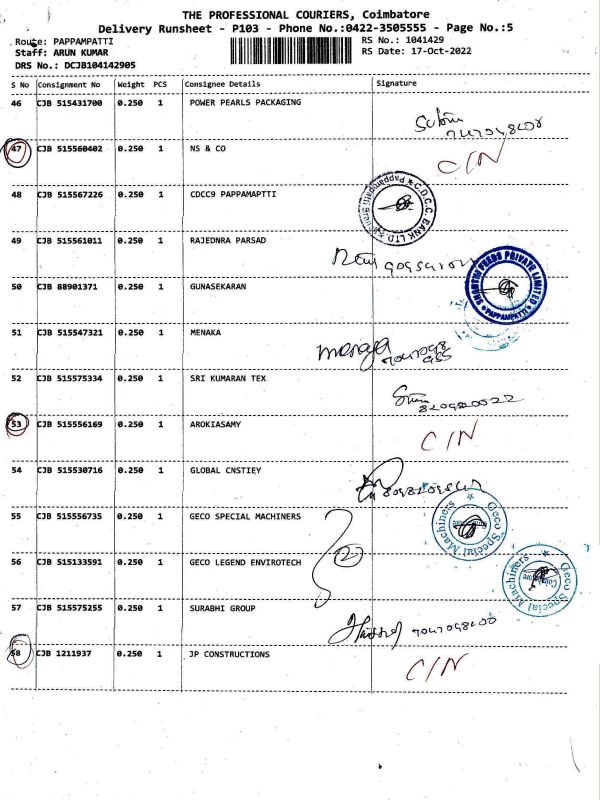 THE PROFESSIONAL COURIERS, Coimbatore
Delivery Runsheet - P103 - Phone No.:0422-3505555 - Page No.:5
Route: PAPPAMPATTI
RS No.: 1041429
Staff: ARUN KUMAR
RS Date: 17-Oct-2022
DRS No.: DCJB104142905
S No Consignment No Weight PCS Consignee Details Signature
46 CJB 515431700 0.250 1 POWER PEARLS PACKAGING
47 CJB 515560402 0.250 1 NS & CO C/N
48 CJB 515567226 0.250 1 CDCC9 PAPPAMAPTTI
C.D.C.C. BANK LTD.
49 CJB 515561011 0.250 1 RAJEDNRA PARSAD
50 CJB 88901371 0.250 1 GUNASEKARAN
SHANTHI FEEDS PRIVATE LIMITED
PAPPAMPATTI
51 CJB 515547321 0.250 1 MENAKA
52 CJB 515575334 0.250 1 SRI KUMARAN TEX
53 CJB 515556169 0.250 1 AROKIASAMY C/N
54 CJB 515530716 0.250 1 GLOBAL CNSTIEY
55 CJB 515556735 0.250 1 GECO SPECIAL MACHINERS
Geco Special Machiners
56 CJB 515133591 0.250 1 GECO LEGEND ENVIROTECH 2
Geco Special Machiners
57 CJB 515575255 0.250 1 SURABHI GROUP
58 CJB 1211937 0.250 1 JP CONSTRUCTIONS C/N